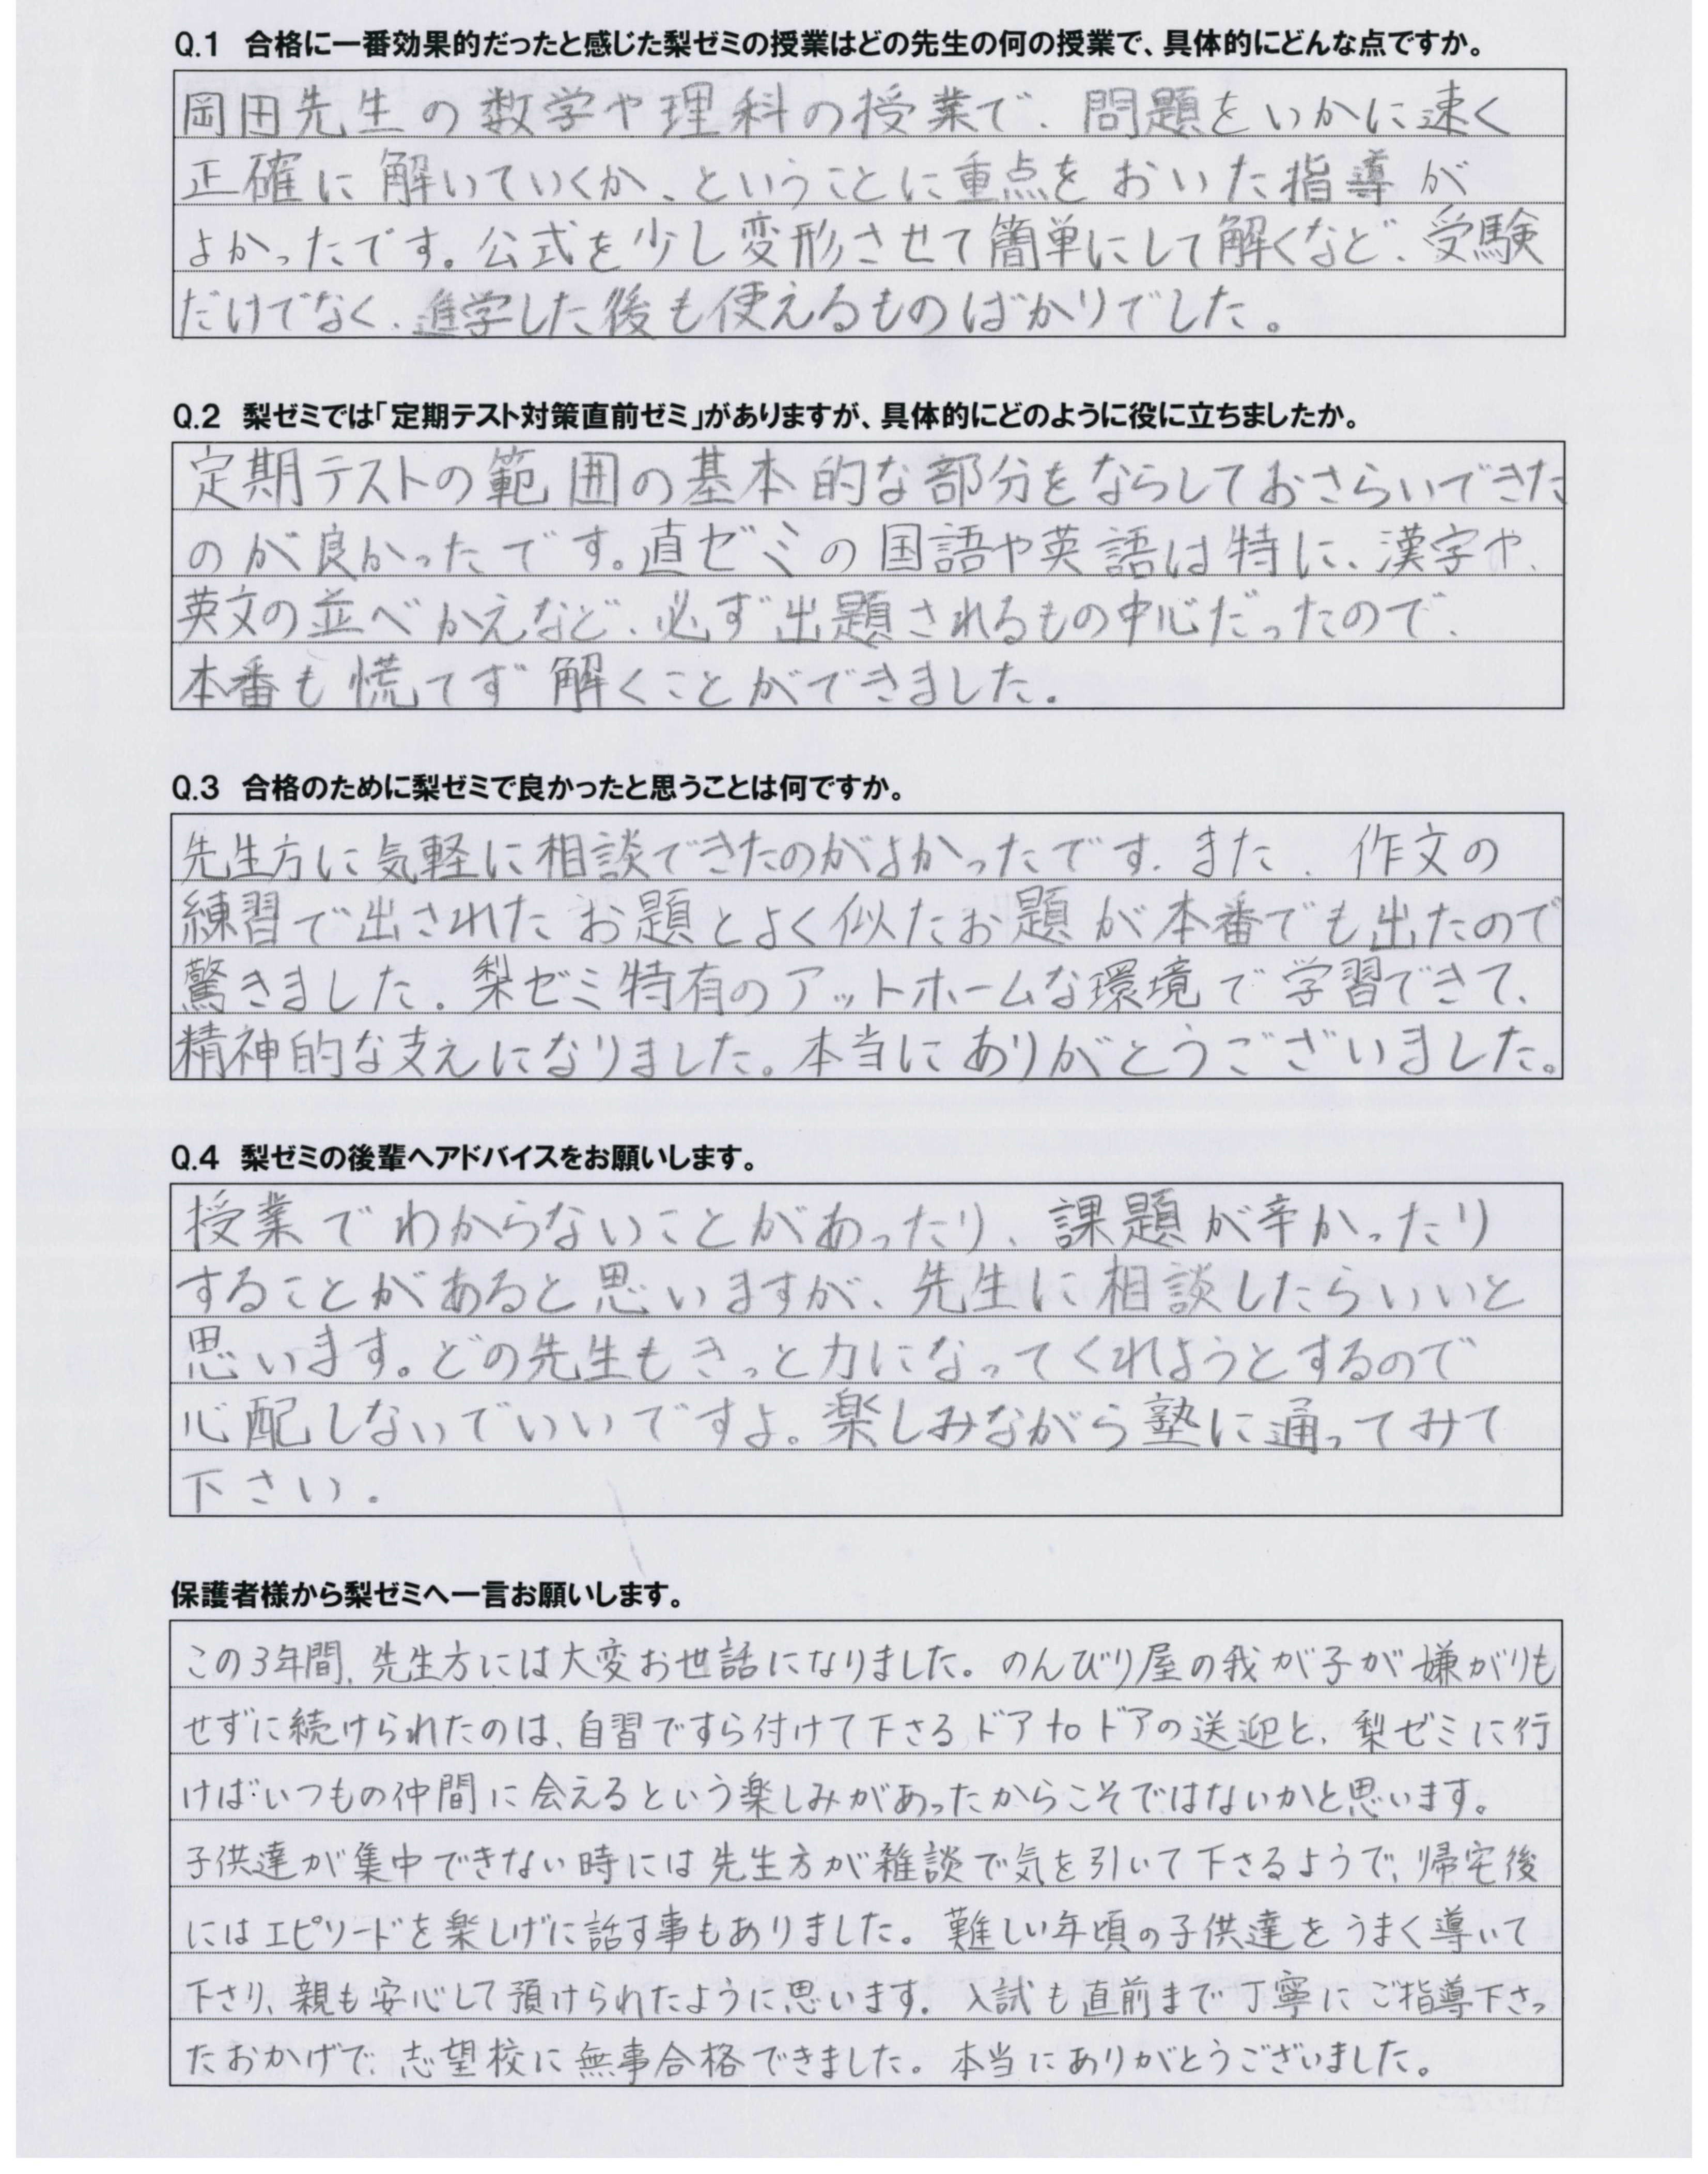 Q.1 合格に一番効果的だったと感じた梨ゼミの授業はどの先生の何の授業で、具体的にどんな点ですか。
岡田先生の数学や理科の授業で、問題をいかに速く
正確に解いていくか、ということに重点をおいた指導が
よかったです。公式を少し変形させて簡単にして解くなど、受験
だけでなく、進学した後も使えるものばかりでした。
Q.2 梨ゼミでは「定期テスト対策直前ゼミ」がありますが、具体的にどのように役に立ちましたか。
定期テストの範囲の基本的な部分をならしておさらいできた
のが良かったです。直ゼミの国語や英語は特に、漢字や、
英文の並べかえなど、必ず出題されるもの中心だったので、
本番も慌てず解くことができました。
Q.3 合格のために梨ゼミで良かったと思うことは何ですか。
先生方に気軽に相談できたのがよかったです。また、作文の
練習で出されたお題とよく似たお題が本番でも出たので
驚きました。梨ゼミ特有のアットホームな環境で学習できて、
精神的な支えになりました。本当にありがとうございました。
Q.4 梨ゼミの後輩へアドバイスをお願いします。
授業でわからないことがあったり、課題が辛かったり
することがあると思いますが、先生に相談したらいいと
思います。どの先生もきっと力になってくれようとするので
心配しないでいいですよ。楽しみながら塾に通ってみて
下さい。
保護者様から梨ゼミへ一言お願いします。
この3年間、先生方には大変お世話になりました。のんびり屋の我が子が嫌がりも
せずに続けられたのは、自習ですら付けて下さるドアtoドアの送迎と、梨ゼミに行
けばいつもの仲間に会えるという楽しみがあったからこそではないかと思います。
子供達が集中できない時には先生方が雑談で気を引いて下さるようで、帰宅後
にはエピソードを楽しげに話す事もありました。難しい年頃の子供達をうまく導いて
下さり、親も安心して預けられたように思います。入試も直前まで丁寧にご指導下さっ
たおかげで、志望校に無事合格できました。本当にありがとうございました。